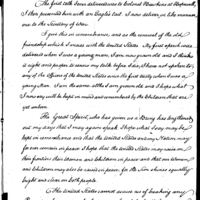 The first talk I ever delivered was to Colonel Hawkins at Hopewell,
I then presented him with an Eagles tail. I was sent on, an
one to the Secretary of War.
I give this in remembrance, and as the renewal of the old
friendship which I made with the United States. My first speech was
delivered when I was a young man. I am now grown old and I think
it right and proper to renew my talk before I die. I have not spoken to
any of the Officers of the United States since the first treaty when I was a
young man. I am the same still, I am grown old and I hope what
I now say will be kept in mind and remembered by the Children that are
yet unborn.
The Great Spirit, who has given us a Day has brightened
out my days that I may again speak. I hope that every one may be
kept in remembrance and that the United States and my Nation may
for ever remain in peace. I hope that the United States may raise on
their frontiers their women and children in peace and that our women
and children may also be raised in peace, for the Sun shines equally
bright and clear on both parts.
The United States cannot accuse us of breaking any